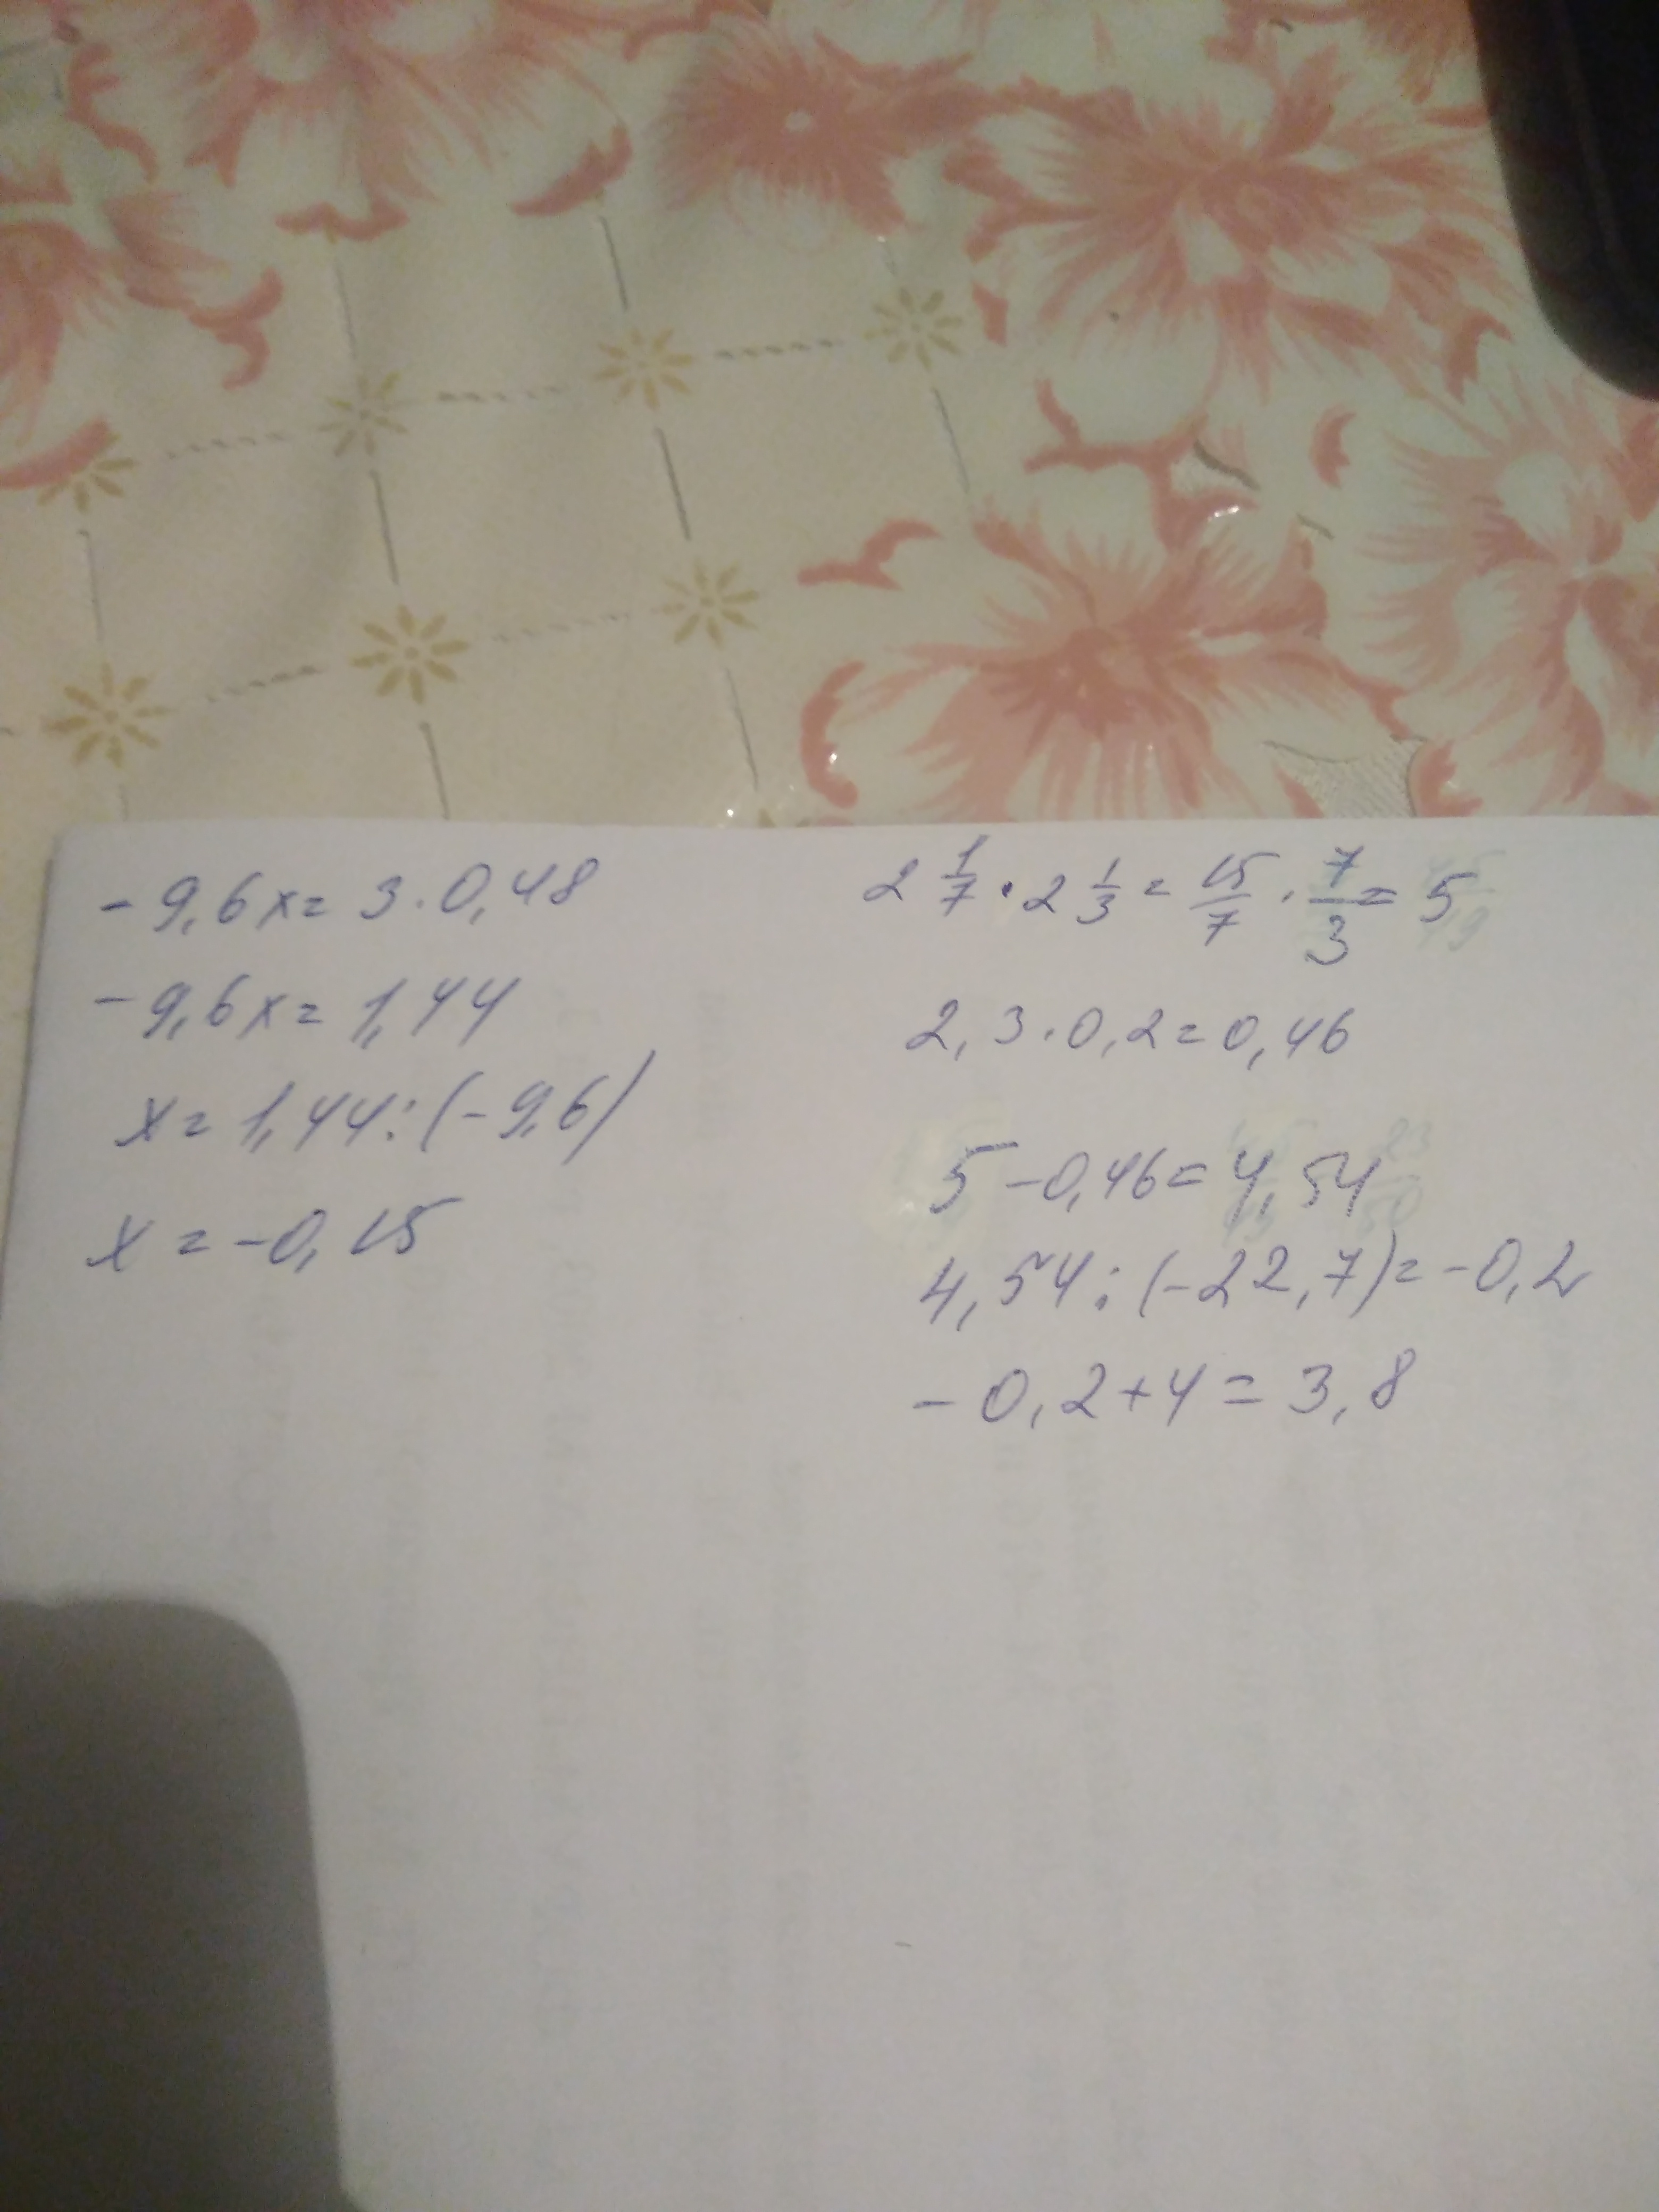 -9,6x=3·0,48
-9,6x=1,44
x=1,44:(-9,6)
x=-0,15
2 1/7 · 2 1/3 = 15/7 · 7/3 = 5
2,3·0,2=0,46
5-0,46=4,54
4,54:(-22,7)=-0,2
-0,2+4=3,8